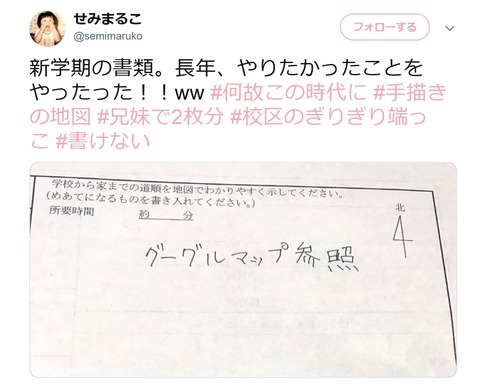 せみまるこ
@semimaruko
フォローする
新学期の書類。長年、やりたかったことを
やったった！！ww #何故この時代に #手描き
の地図 #兄妹で2枚分 #校区のぎりぎり端っ
こ #書けない
学校から家までの道順を地図でわかりやすく示してください。
(めあてになるものを書き入れてください。)
所要時間 約 分
北
グーグルマップ参照